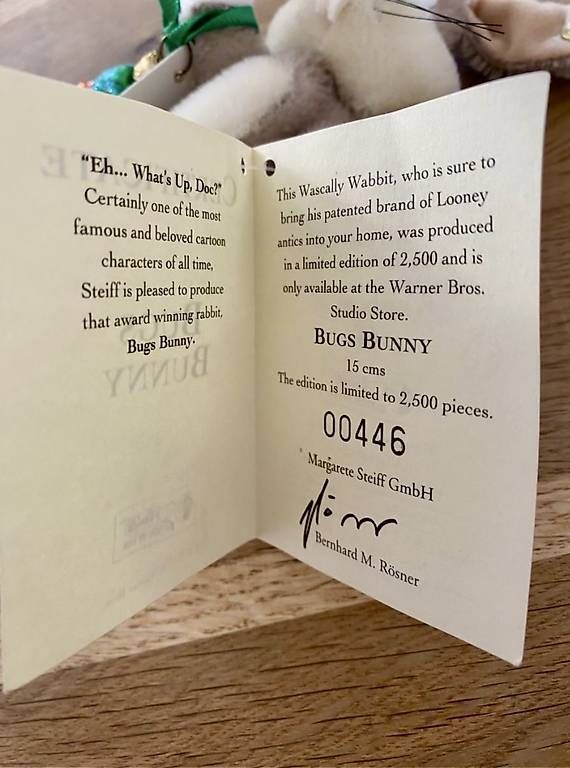 "Eh... What's Up, Doc?"
Certainly one of the most
famous and beloved cartoon
characters of all time,
Steiff is pleased to produce
that award winning rabbit,
Bugs Bunny.
This Wascally Wabbit, who is sure to
bring his patented brand of Looney
antics into your home, was produced
in a limited edition of 2,500 and is
only available at the Warner Bros.
Studio Store.
BUGS BUNNY
15 cms
The edition is limited to 2,500 pieces.
00446
Margarete Steiff GmbH
Bernhard M. Rösner